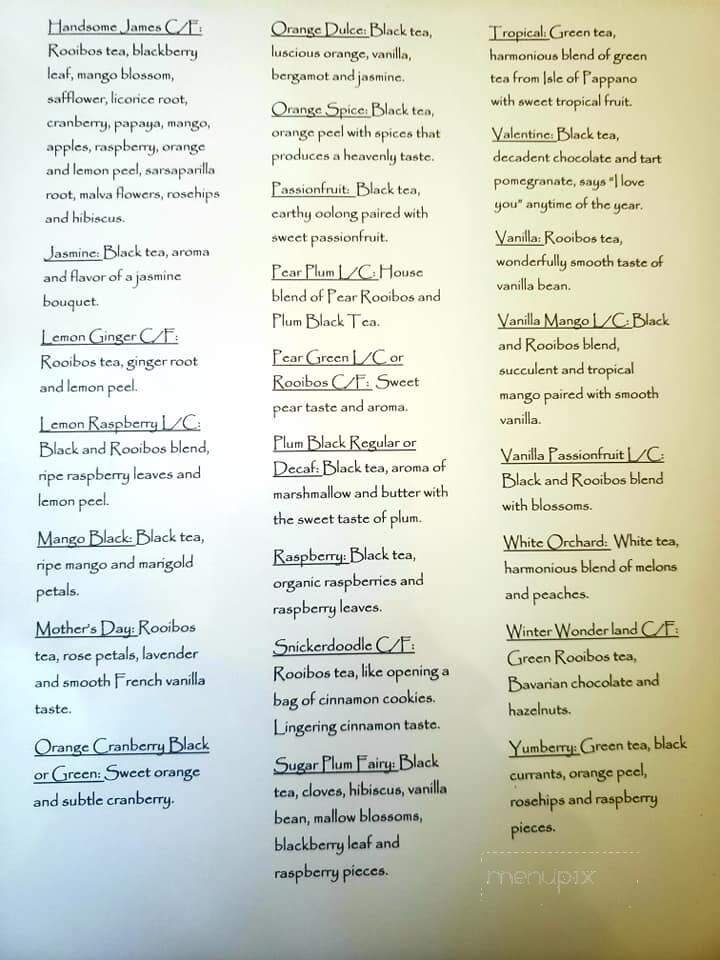 Handsome James C/F:
Rooibos tea, blackberry
leaf, mango blossom,
safflower, licorice root,
cranberry, papaya, mango,
apples, raspberry, orange
and lemon peel, sarsaparilla
root, malva flowers, rosehips
and hibiscus.
Jasmine: Black tea, aroma
and flavor of a jasmine
bouquet.
Lemon Ginger C/F:
Rooibos tea, ginger root
and lemon peel.
Lemon Raspberry L/C:
Black and Rooibos blend,
ripe raspberry leaves and
lemon peel.
Mango Black: Black tea,
ripe mango and marigold
petals.
Mother's Day: Rooibos
tea, rose petals, lavender
and smooth French vanilla
taste.
Orange Cranberry Black
or Green: Sweet orange
and subtle cranberry.
Orange Dulce: Black tea,
luscious orange, vanilla,
bergamot and jasmine.
Orange Spice: Black tea,
orange peel with spices that
produces a heavenly taste.
Passionfruit: Black tea,
earthy oolong paired with
sweet passionfruit.
Pear Plum L/C: House
blend of Pear Rooibos and
Plum Black Tea.
Pear Green L/C or
Rooibos C/F: Sweet
pear taste and aroma.
Plum Black Regular or
Decaf: Black tea, aroma of
marshmallow and butter with
the sweet taste of plum.
Raspberry: Black tea,
organic raspberries and
raspberry leaves.
Snickerdoodle C/F:
Rooibos tea, like opening a
bag of cinnamon cookies.
Lingering cinnamon taste.
Sugar Plum Fairy: Black
tea, cloves, hibiscus, vanilla
bean, mallow blossoms,
blackberry leaf and
raspberry pieces.
Tropical: Green tea,
harmonious blend of green
tea from Isle of Pappano
with sweet tropical fruit.
Valentine: Black tea,
decadent chocolate and tart
pomegranate, says "I love
you" anytime of the year.
Vanilla: Rooibos tea,
wonderfully smooth taste of
vanilla bean.
Vanilla Mango L/C: Black
and Rooibos blend,
succulent and tropical
mango paired with smooth
vanilla.
Vanilla Passionfruit L/C:
Black and Rooibos blend
with blossoms.
White Orchard: White tea,
harmonious blend of melons
and peaches.
Winter Wonder land C/F:
Green Rooibos tea,
Bavarian chocolate and
hazelnuts.
Yumberry: Green tea, black
currants, orange peel,
rosehips and raspberry
pieces.
menupix